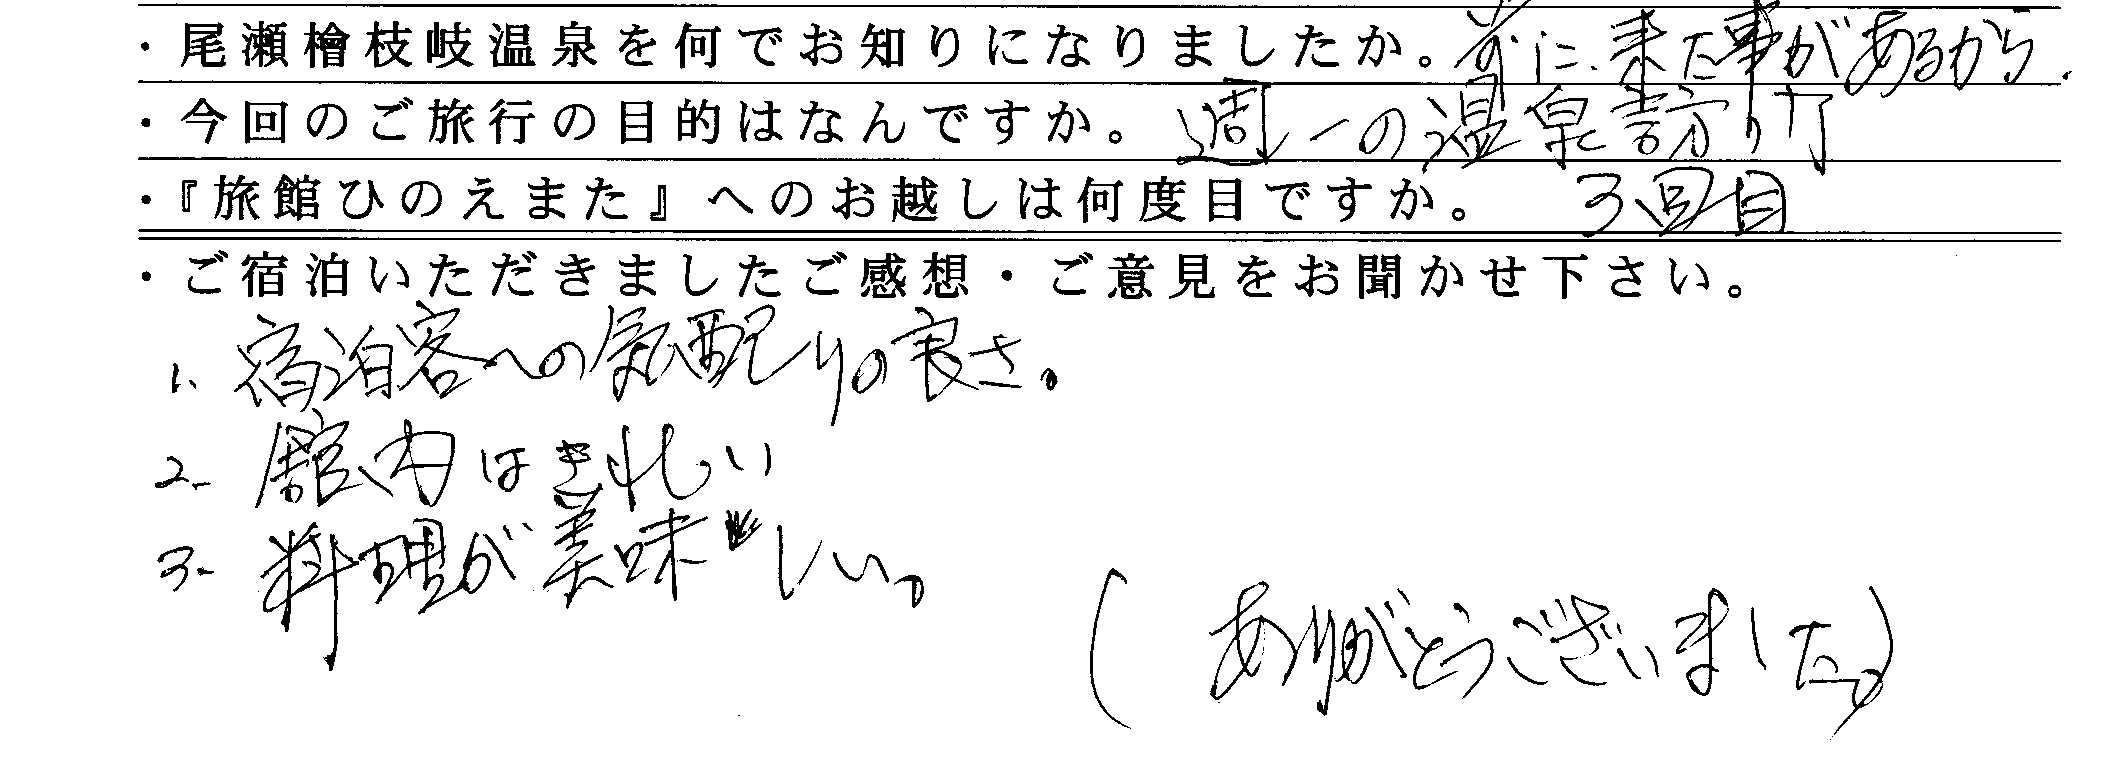 ・尾瀬檜枝岐温泉を何でお知りになりましたか。前に来た事があるから.
・今回のご旅行の目的はなんですか。週一の温泉
・『旅館ひのえまた』へのお越しは何度目ですか。 3回目
・ご宿泊いただきましたご感想・ご意見をお聞かせ下さい。
1. 宿泊客への気配りの良さ。
2- 館内はきれい
3- 料理が美味しい。
(ありがとうございました。)